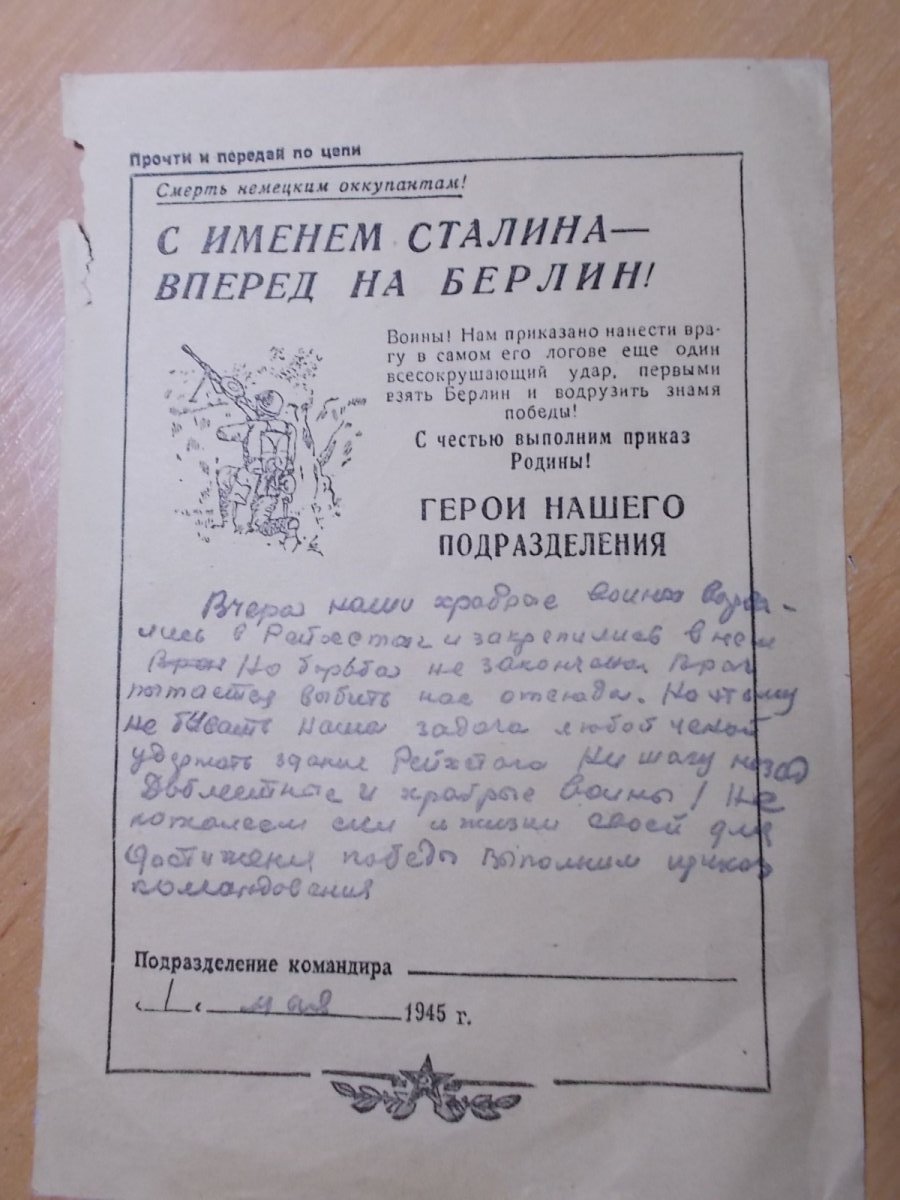 Прочти и передай по цепи
Смерть немецким оккупантам!
С ИМЕНЕМ СТАЛИНА—
ВПЕРЕД НА БЕРЛИН!
Воины! Нам приказано нанести вра-
гу в самом его логове еще один
всесокрушающий удар, первыми
взять Берлин и водрузить знамя
победы!
С честью выполним приказ
Родины!
ГЕРОИ НАШЕГО
ПОДРАЗДЕЛЕНИЯ
Вчера наши храбрые воины ворва-
лись в Рейхстаг и закрепились в нем
Но борьба не закончена Враг
пытается выбить нас отсюда. Но этому
не бывать Наша задача любой ценой
удержать здание Рейхстага Ни шагу назад
Доблестные и храбрые воины! Не
пожалеем сил и жизни своей для
достижения победы выполним приказ
командования
Подразделение командира
„1" мая 1945 г.